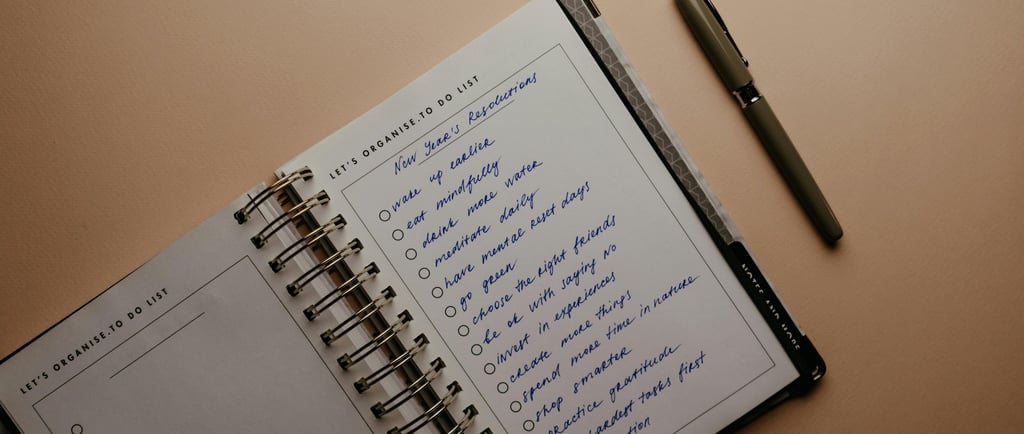 LET'S ORGANISE.TO DO LIST
LET'S ORGANISE.TO DO LIST
New Year's Resolutions
wake up earlier
eat mindfully
drink more water
meditate daily
have mental reset days
go green
choose the right friends
be ok with saying no
invest in experiences
create more things
spend more time in nature
shop smarter
practice gratitude
tasks first
NOTES AND MORE